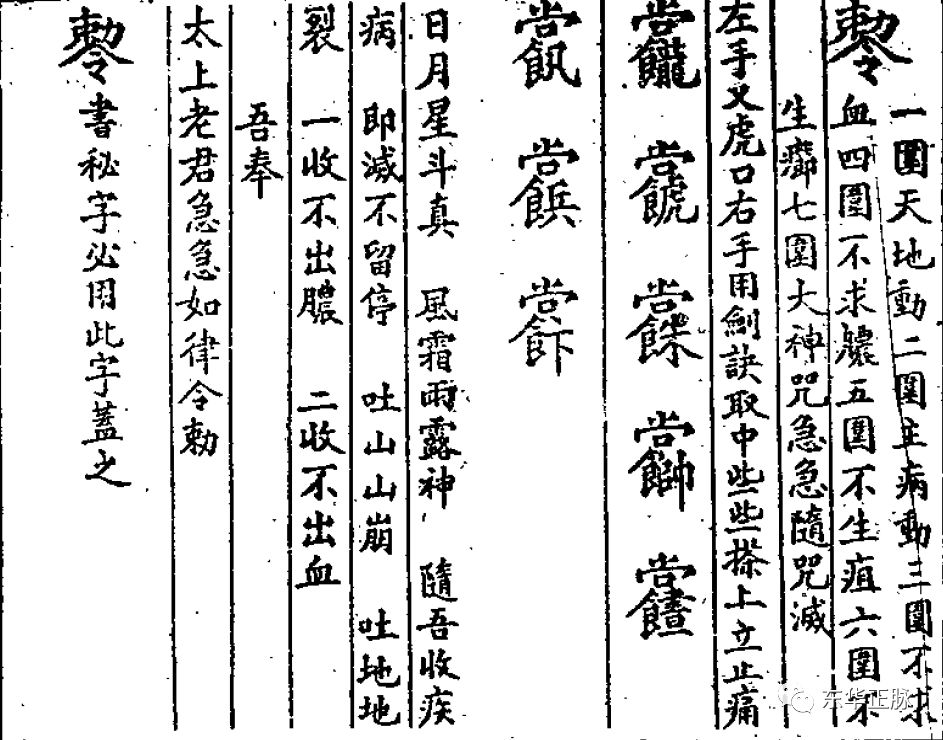 一圍天地動二圍主病動三圍不求
血四圍不求膿五圍不生疽六圍不
生 七圍大神咒急急隨咒滅
左手叉虎口右手用劍訣取中些些搽上立止痛
日月星斗真 風霜雨露神 隨吾收疾
病 即滅不留停 吐山山崩 吐地地
裂 一收不出膿 二收不出血
吾奉
太上老君急急如律令勅
書秘字必用此字蓋之
东华正脉